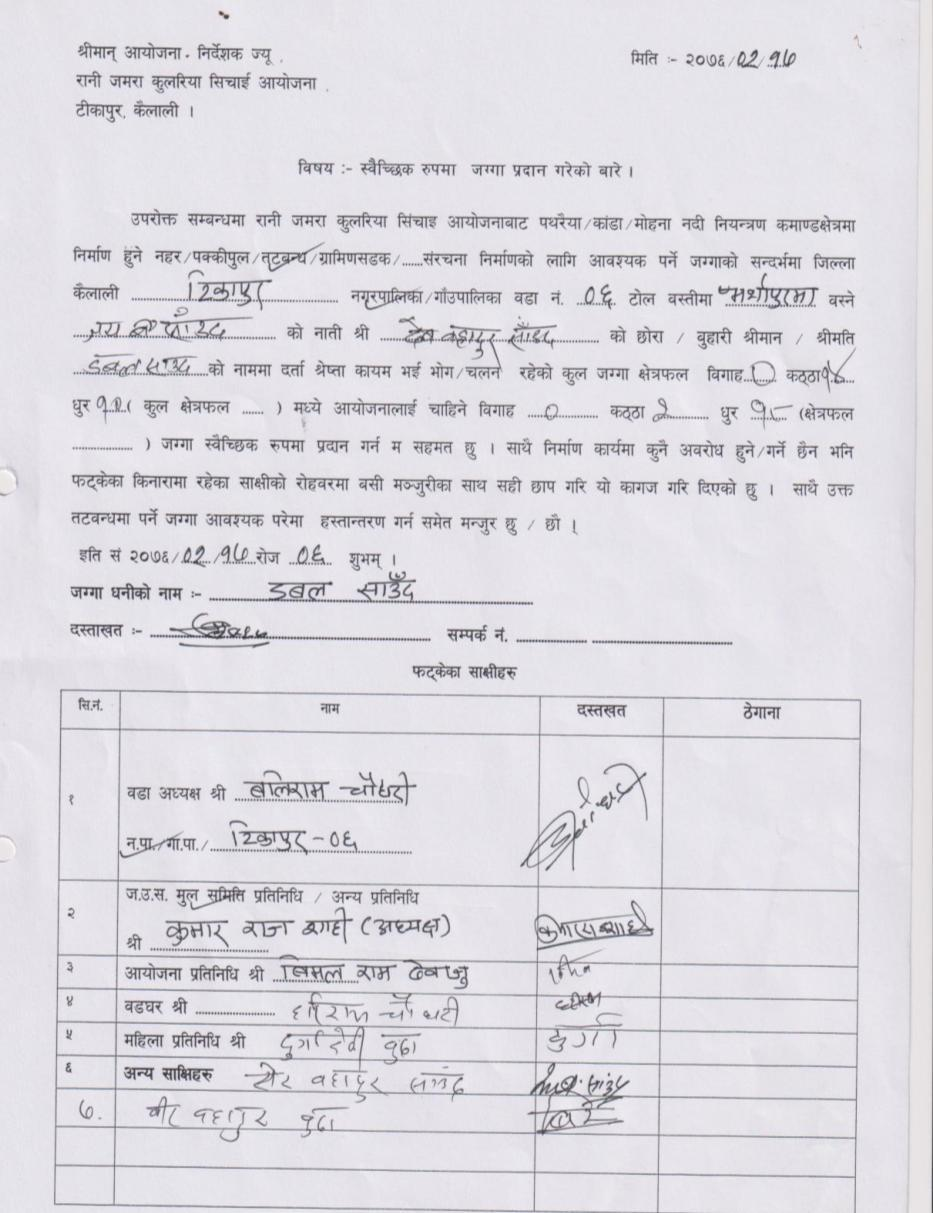 श्रीमान् आयोजना. निर्देशक ज्यू,
मिति :- २०७६/०२/१७
रानी जमरा कुलरिया सिचाई आयोजना
टीकापुर, कैलाली ।
विषय :- स्वैच्छिक रुपमा जग्गा प्रदान गरेको बारे ।
उपरोक्त सम्बन्धमा रानी जमरा कुलरिया सिंचाइ आयोजनाबाट पथरैया/कांडा/मोहना नदी नियन्त्रण कमाण्डक्षेत्रमा
निर्माण हुने नहर/पक्कीपुल/तटबन्ध/ग्रामिणसडक/......संरचना निर्माणको लागि आवश्यक पर्ने जग्गाको सन्दर्भमा जिल्ला
कैलाली टिकापुर नगरपालिका/गाँउपालिका वडा नं. ०६ टोल वस्तीमा वस्ने
को नाती श्री देव बहादुर साँउद को छोरा / बुहारी श्रीमान / श्रीमति
डबल साउद को नाममा दर्ता श्रेष्ता कायम भई भोग/चलन रहेको कुल जग्गा क्षेत्रफल विगाह ० कठ्ठा
धुर ( कुल क्षेत्रफल ...... ) मध्ये आयोजनालाई चाहिने विगाह ० कठ्ठा २ धुर (क्षेत्रफल
............... ) जग्गा स्वैच्छिक रुपमा प्रदान गर्न म सहमत छु । साथै निर्माण कार्यमा कुनै अवरोध हुने/गर्ने छैन भनि
फट्केका किनारामा रहेका साक्षीको रोहवरमा बसी मञ्जुरीका साथ सही छाप गरि यो कागज गरि दिएको छु । साथै उक्त
तटवन्धमा पर्ने जग्गा आवश्यक परेमा हस्तान्तरण गर्न समेत मन्जुर छु / छौ ।
इति सं २०७६/०२/१७ रोज ०६ शुभम् ।
जग्गा धनीको नाम :- डबल साउँद
दस्ताखत :- सम्पर्क नं. ..................
फट्केका साक्षीहरु
सि.नं. नाम दस्तखत ठेगाना
१ वडा अध्यक्ष श्री बलिराम चौधरी
न.पा./गा.पा./ टिकापुर-०६
२ ज.उ.स. मुल समिति प्रतिनिधि / अन्य प्रतिनिधि
श्री कुमार राज शाही (अध्यक्ष)
३ आयोजना प्रतिनिधि श्री बिमल राम
४ वडघर श्री हरिराम चौधरी
५ महिला प्रतिनिधि श्री दुर्गादेवी बुढा दुर्गा
६ अन्य साक्षिहरु शेर बहादुर साउद
७. वीर बहादुर बुढा